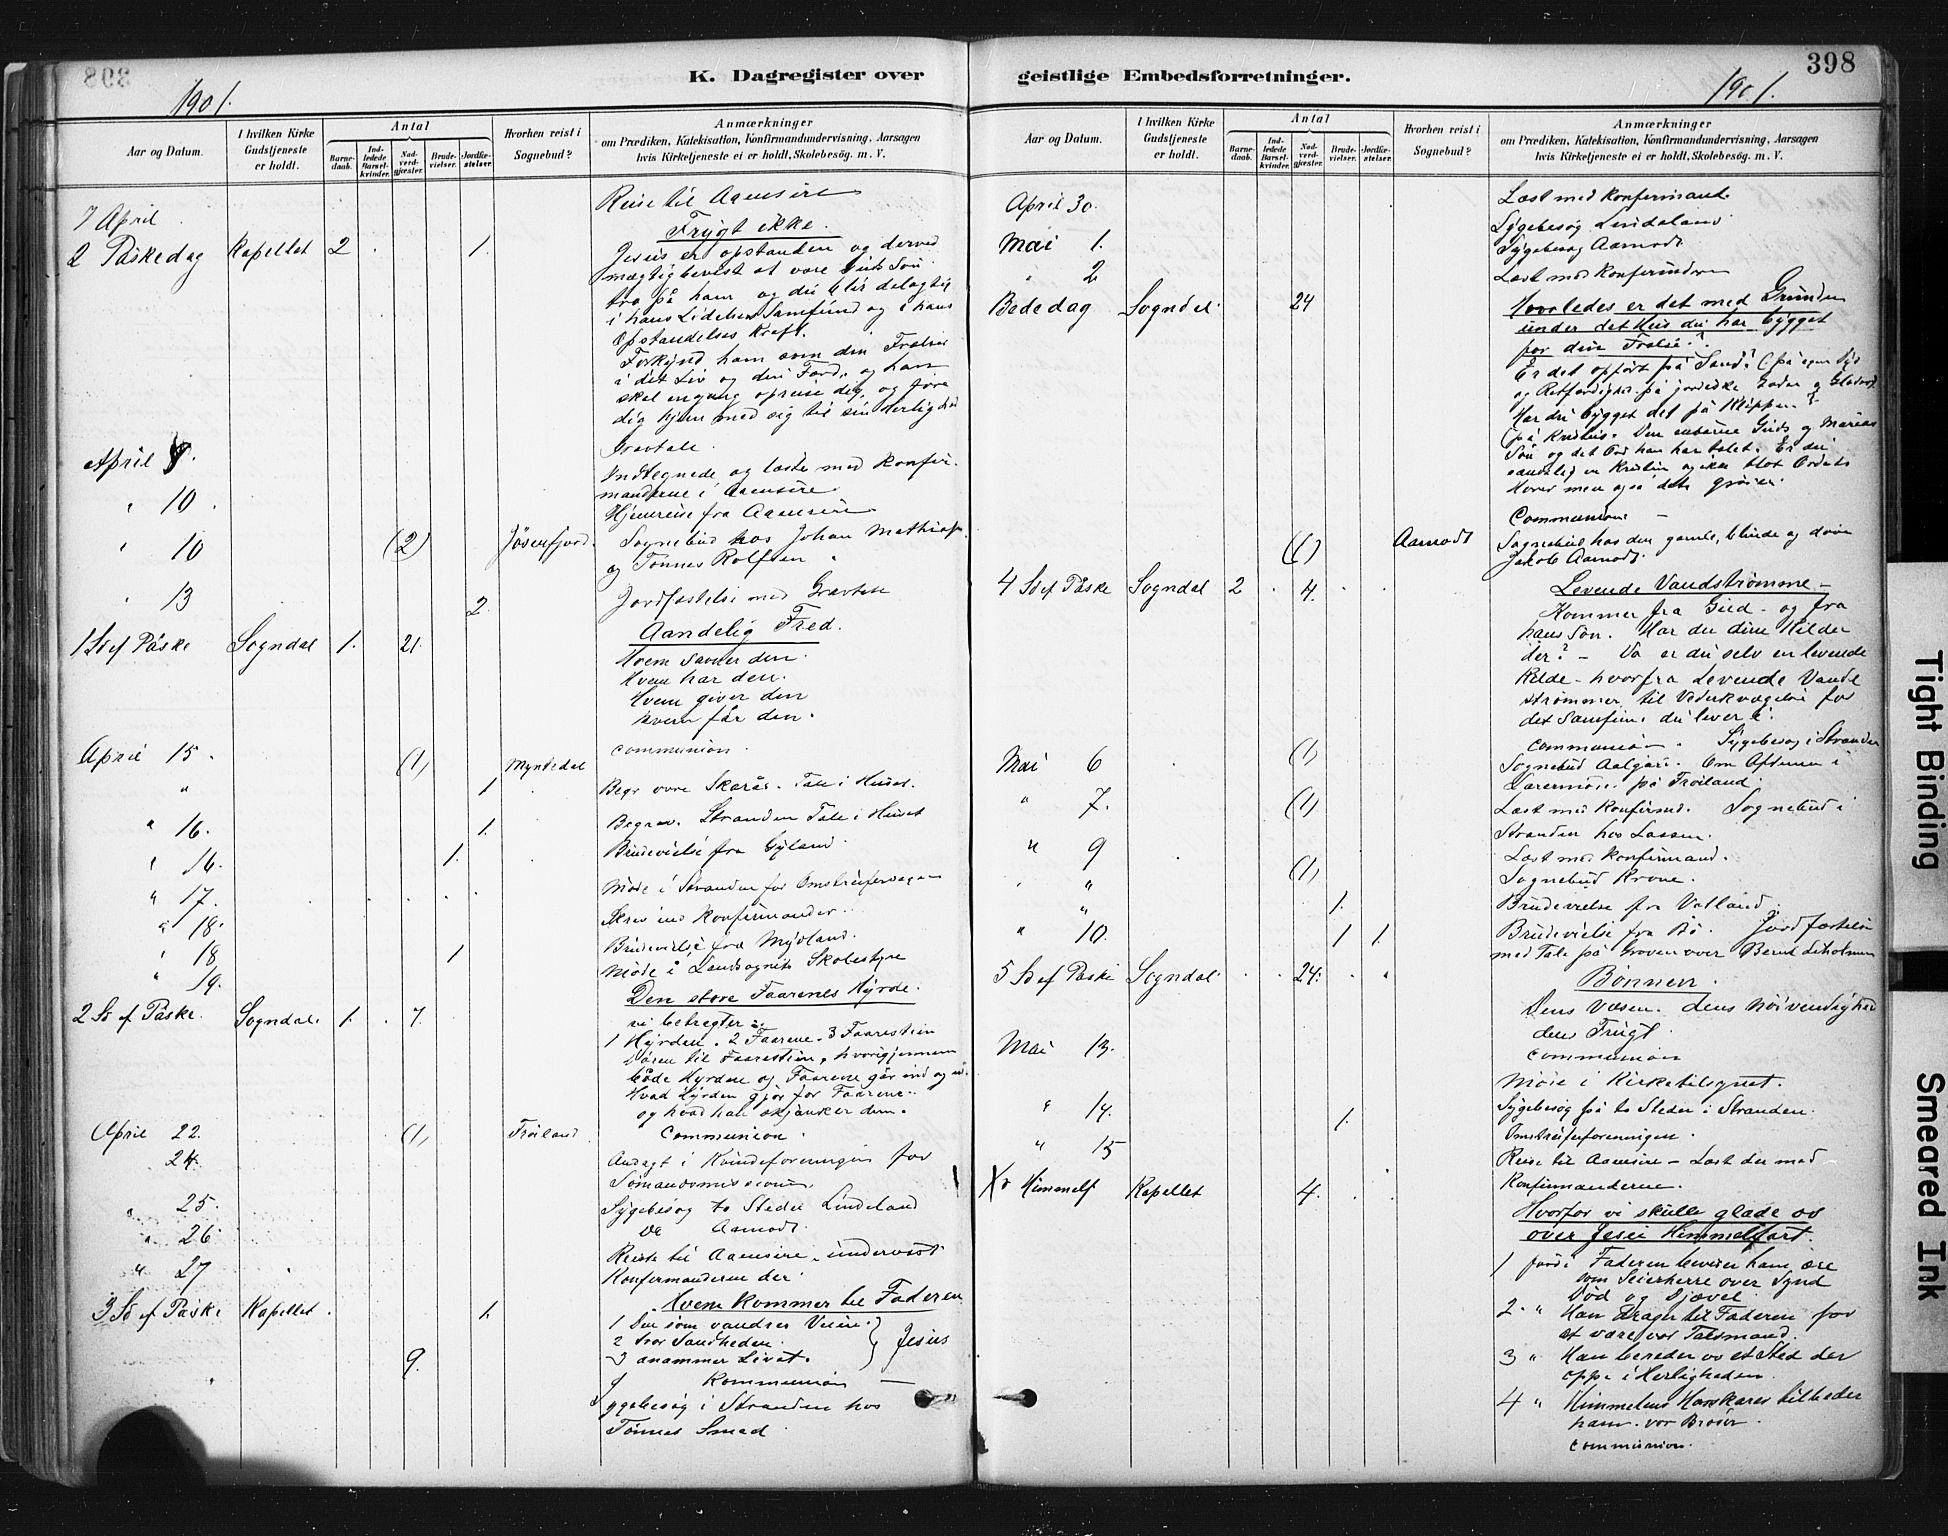 398
K. Dagregister over
1901.
Aar og Datum.
I hvilken Kirke
Gudstjeneste
er holdt.
Antal
Barne-
daab.
Ind-
ledede
Barsel-
kvinder.
Nad-
verd-
gjæster.
Brude-
vielser.
Jordfæ-
stelser.
Hvorhen reist i
Sognebud?
Anmærkninger
om Prædiken, Katekisation, Konfirmandundervisning, Aarsagen
hvis Kirketjeneste ei er holdt, Skolebesøg. m. V.
Reise til Aaensire
7 April
Frygt ikke.
2 Påskedag Kapellet 2 1. Jesus er opstanden og derved
mægtig bevist at være Guds Søn
tro på ham og du blir delagtig
i hans Lidelses Samfund og i hans
Opstandelses Kraft.
Forkynd ham som din Frelser
i dit Liv og din Færd, og han
skal engang opreise dig, og føre
dig hjem med sig til sin Herlighed
Gravtale.
April
Indtegnede og læste med konfir-
manderne i Aaensire
" 10. Hjemreise fra Aaensire
" 10 (2) Jøsenfjord. Sognebud hos Johan Mathias
og Tønnes Rolfsen
" 13 2. Jordfæstelse med Gravtale
Aandelig Fred.
1 S ef Påske Sogndal 1. 21. Hvem savner den.
Hvem har den.
Hvem giver den
Hvem får den.
communion.
April 15. (1) Myndedal
" 1 Begr øvre Skarås. Tale i Huset.
" 16. 1. Begrav. Stranden Tale i Huset
" 16. 1. Brudevielse fra Gyland.
" 17. Møde i Stranden for Omstreifersagen
" 18. Skrev ind Konfirmander.
" 18 1 Brudevielse fra Mydland.
" 19. Møde i Landsognets Skolestyre
Den store Faarenes Hyrde.
2 S ef Påske. Sogndal. 1. 7. vi betragter
1 Hyrden. 2 Faarene. 3 Faarestien
Døren til Faarestien, hvorigjennem
både Hyrden og Faarene går ind og ud.
Hvad Hyrden gjør for Faarene
og hvad han skjænker dem.
April 22. (1) Frøiland. Communion.
24. Andagt i Kvindeforeningen for
Sømandsmissionen.
" 25. Sygebesøg to Steder Lindeland
" 26 Do Aamodt
" 27 Reiste til Aaensire, underviste
Konfirmanderne der
3 S ef Påske Kapellet. 1. Hvem kommer til Faderen
1 Den som vandrer Veien.
2 tror Sandheden.
3 anammer Livet.
Jesus
9. Kommunion
Sygebesøg i Stranden hos
Tønnes Smed
geistlige Embedsforretninger.
398
1901.
Aar og Datum.
I hvilken Kirke
Gudstjeneste
er holdt.
Antal
Barne-
daab.
Ind-
ledede
Barsel-
kvinder.
Nad-
verd-
gjæster.
Brude-
vielser.
Jordfæ-
stelser.
Hvorhen reist i
Sognebud?
Anmærkninger
om Prædiken, Katekisation, Konfirmandundervisning, Aarsagen
hvis Kirketjeneste ei er holdt, Skolebesøg. m. V.
April 30. Læst med konfirmand.
Sygebesøg Lindeland
Mai 1. Sygebesøg Aamodt
" 2 Læst med konfirmdr
Bededag Sogndal. 24 Hvorledes er det med Grunden
under det Hus du har bygget
for din Frelse?
Er det opført på Sand? (på egen Dyd
og Retfærdighed på jordiske Goder og Glæder)
Har du bygget det på Klippen?
(på Kristus. Den enbårne Guds og Marias
Søn og det Ord han har talet. Er du
sandelig en Kristen og ikke blot Ordets
Hører men også dets gjører.
Communion
(1) Aamodt Sognebud hos den gamle, blinde og døve
Jakob Aamodt.
4 S ef Påske Sogndal 2 4. Levende Vandstrømme
Kommer fra Gud og fra
hans Søn. Har du dine Kilder
der? - Da er du selv en levende
Kilde - hvorfra Levende Vande
strømmer til Vederkvægelse for
det Samfund du lever i.
communion. Sygebesøg i Stranden
Mai 6 (1) Sognebud Aalgård. Om Aftenen i
Lærermøde på Frøiland
" 7. (1) Læst med Konfirmd. Sognebud i
Stranden hos Lassen.
" 9 Læst med Konfirmand.
" (1) Sognebud Krone.
" 1. Brudevielse fra Valland.
" 10. 1 1. Brudevielse fra Bø. Jordfæstelse
med Tale på Graven over Bernt Liholmen
5 S ef Påske Sogndal 24. Bønnen.
Dens Væsen. dens Nødvendighed
dens Frugt.
communion
Mai 13. Møde i Kirketilsynet.
Sygebesøg på to Steder i Stranden.
" 14. 1. Omstreiferforeningen.
" 15 Reise til Aaensire - Læst der med
Konfirmanderne.
Kr Himmelf Kapellet 4. Hvorfor vi skulle glæde os
over Jesu Himmelfart.
1 fordi Faderen beviser ham ære
som Seierherre over Synd
Død og Djævel.
2. " Han Drager til Faderen for
at være vor Talsmand.
3 " Han bereder os et Sted der
oppe i Herligheden.
4 " Himmelens Hærskarer tilbeder
ham vor Broder.
communion.
Tight Binding
Smeared Ink